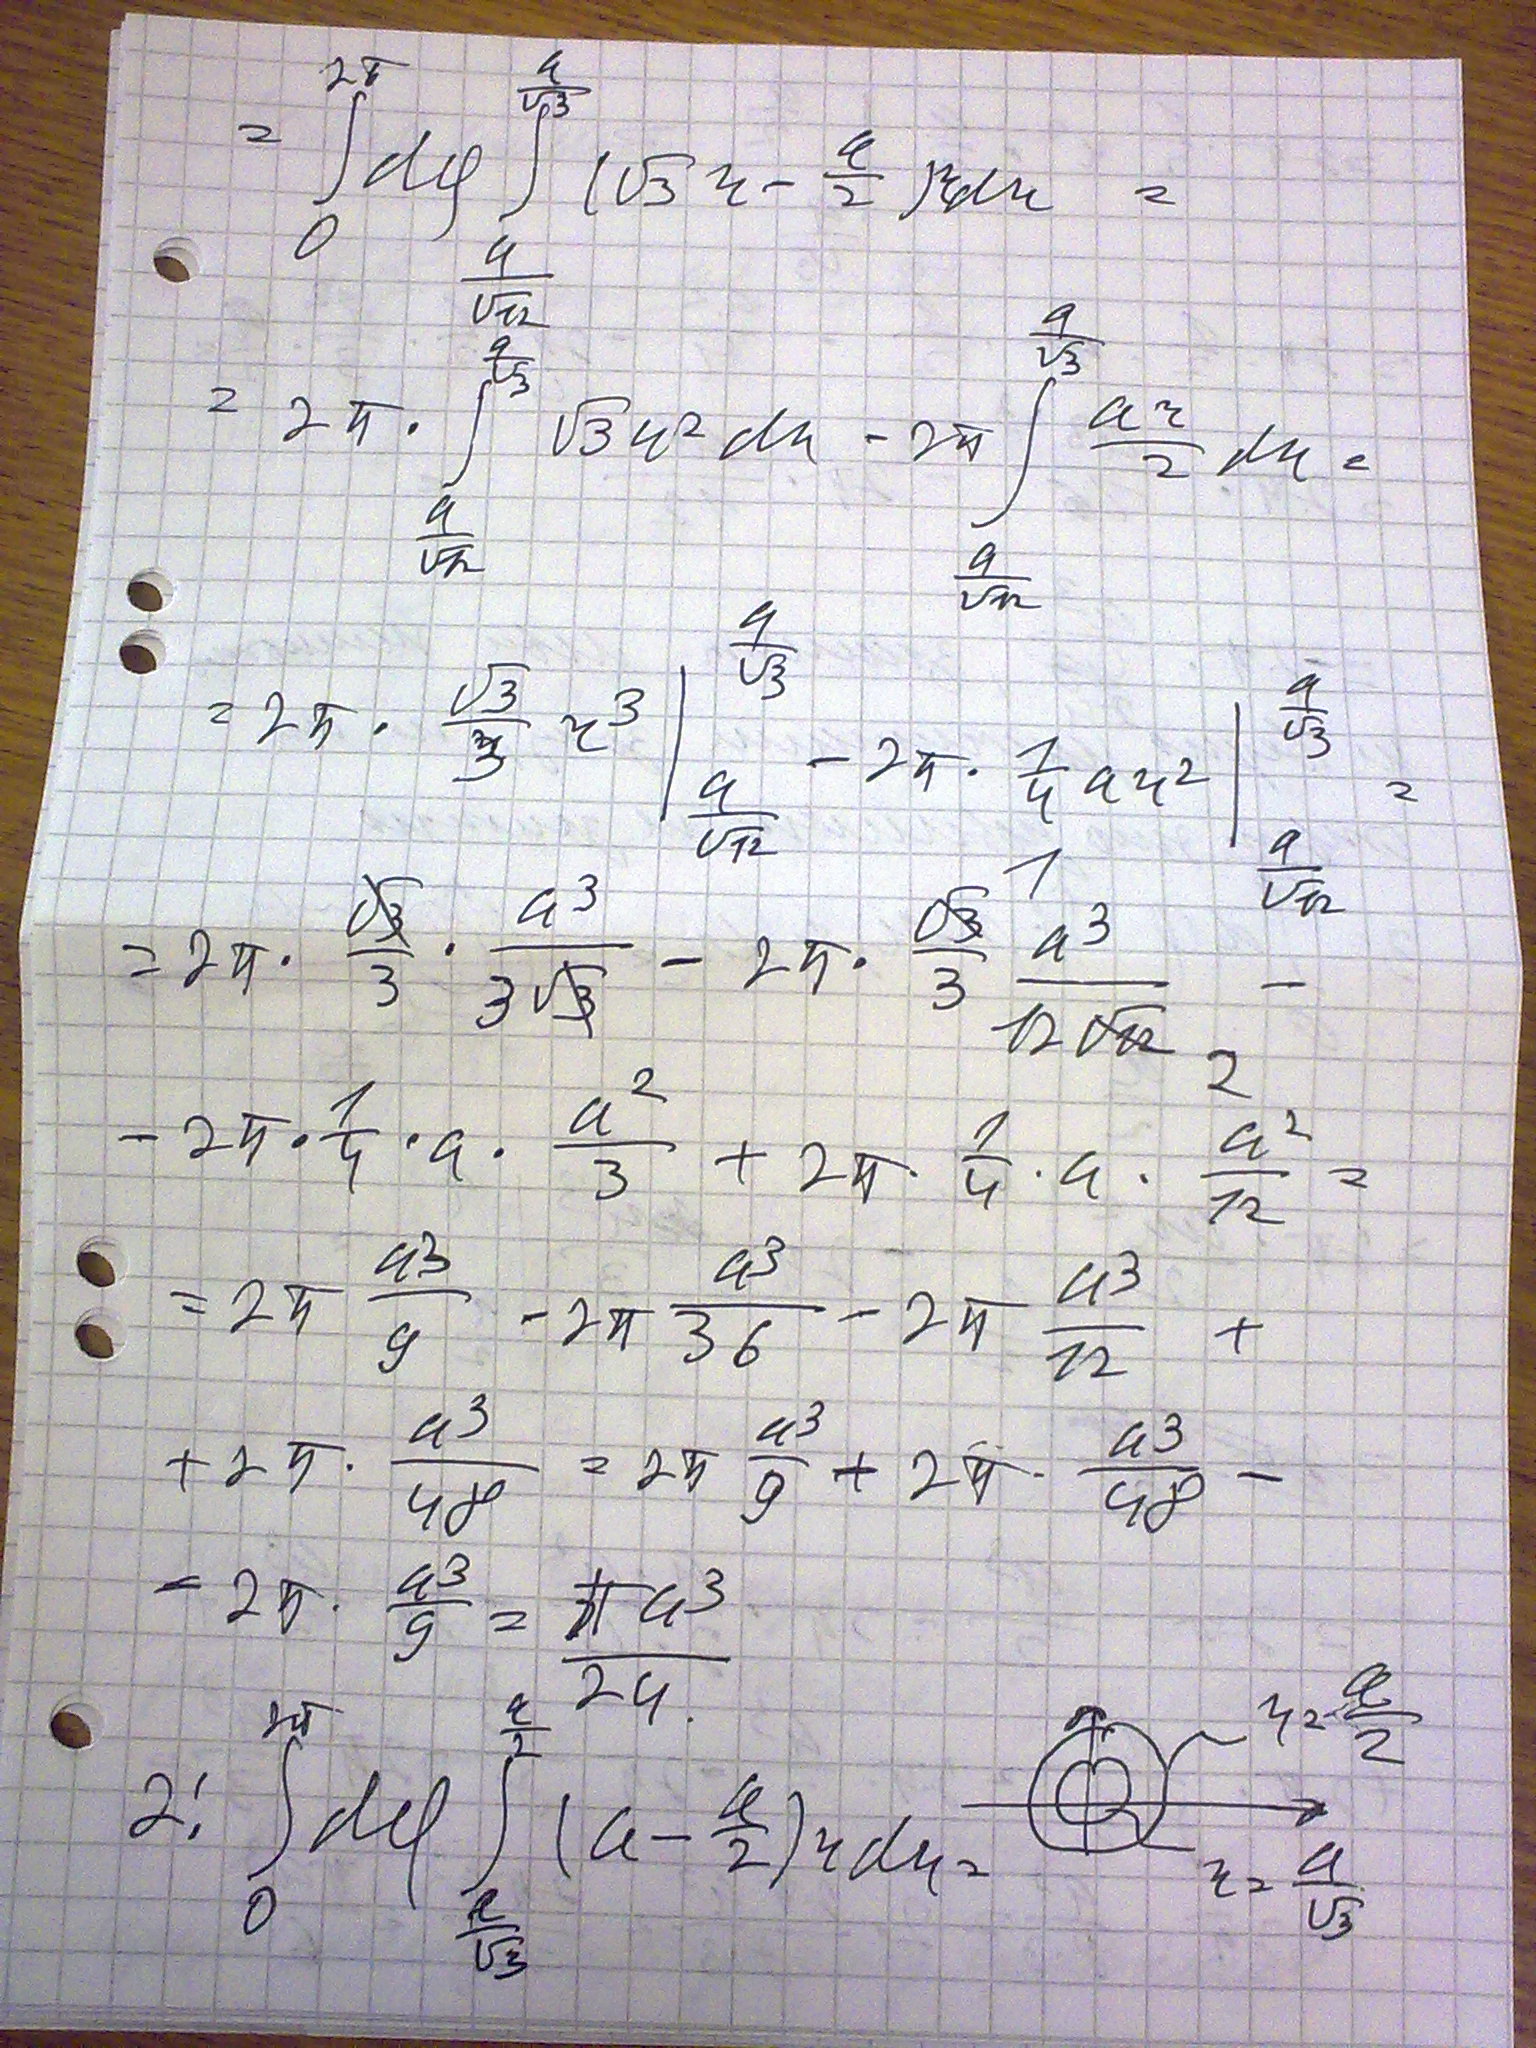 = ∫_0^{2π} dφ ∫_{a/√12}^{a/√3} (√3 r - a/2) r dr =
= 2π · ∫_{a/√12}^{a/√3} √3 r² dr - 2π ∫_{a/√12}^{a/√3} ar/2 dr =
= 2π · √3/3 r³ |_{a/√12}^{a/√3} - 2π · 1/4 a r² |_{a/√12}^{a/√3} =
= 2π · √3/3 · a³/(3√3) - 2π · √3/3 a³/(12√12) -
- 2π · 1/4 · a · a²/3 + 2π · 1/4 · a · a²/12 =
= 2π a³/9 - 2π a³/36 - 2π a³/12 +
+ 2π · a³/48 = 2π a³/9 + 2π · a³/48 -
- 2π · a³/9 = πa³/24.
2: ∫_0^{2π} dφ ∫_{a/√3}^{a/2} (a - a/2) r dr =
r = a/2
r = a/√3